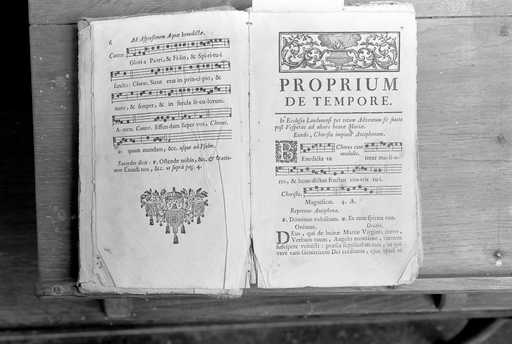 6. Ad Aspersionem Aquæ benedictæ.
Cantor.
Gloria Patri, & Filio, & Spiritui
sancto: Chorus. Sicut erat in principio, &
nunc, & semper, & in secula seculorum.
Amen. Cantor. Effundam super vos, Chorus.
quam mundam, &c. usque ad Psalm.
Sacerdos dicit: ℣. Ostende nobis, &c. &
Exaudi nos, &c. ut suprà pag. 4.
PROPRIUM
DE TEMPORE.
In Ecclesia
post Vesperas ad altare beatæ Mariæ.
Eundo, Choristæ imponit Antiphonam.
Benedicta tu
Chorus cum
modulis.
inter mulie-
res, & benedictus fructus ventris tui.
Choristæ,
Magnificat. 4. A.
Repetitur Antiphona.
℣. Dominus vobiscum. ℟. Et cum spiritu tuo.
Orémus.
Oratio.
Deus, qui de beatæ Mariæ Virginis utero,
Verbum tuum, Angelo nuntiante, carnem
suscipere voluisti: præsta supplicibus tuis, ut qui
vere eam Genitricem Dei credimus, ejus apud te